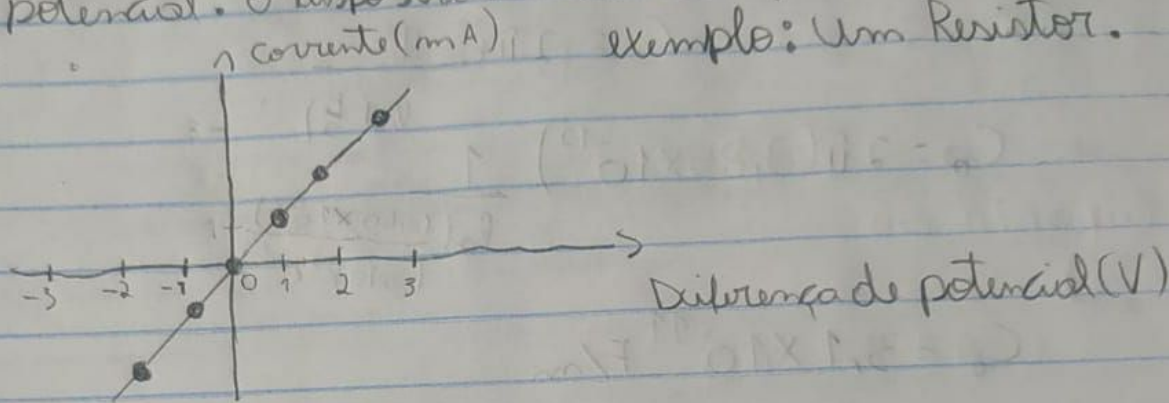 potencial. O
corrente (mA) exemplo: Um Resistor.
-3 -2 -1 0 1 2 3
Diferença de potencial (V)